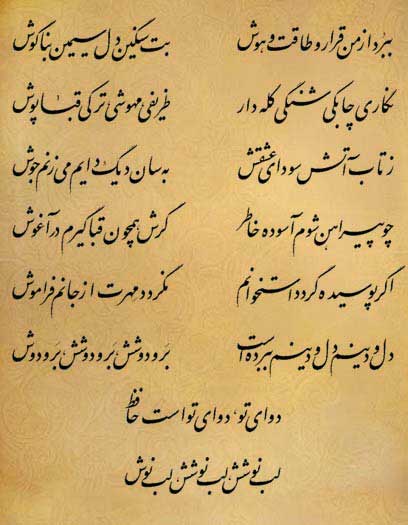 ببرد از من قرار و طاقت و هوش بت سنگین دل سیمین بناگوش
نگاری چابکی شنگی کله دار ظریفی مهوشی ترکی قباپوش
ز تاب آتش سودای عشقش به سان دیگ دایم می زنم جوش
چو پیراهن شوم آسوده خاطر گرش همچون قبا گیرم در آغوش
اگر پوسیده گردد استخوانم نگردد مهرت از جانم فراموش
دل و دینم دل و دینم ببرده است بر و دوشش بر و دوشش بر و دوش
دوای تو، دوای تو است حافظ
لب نوشش لب نوشش لب نوش